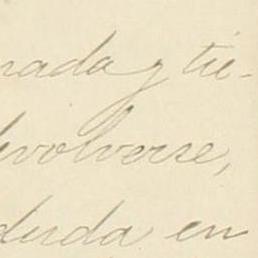 nada y tie-
devolverse,
duda en